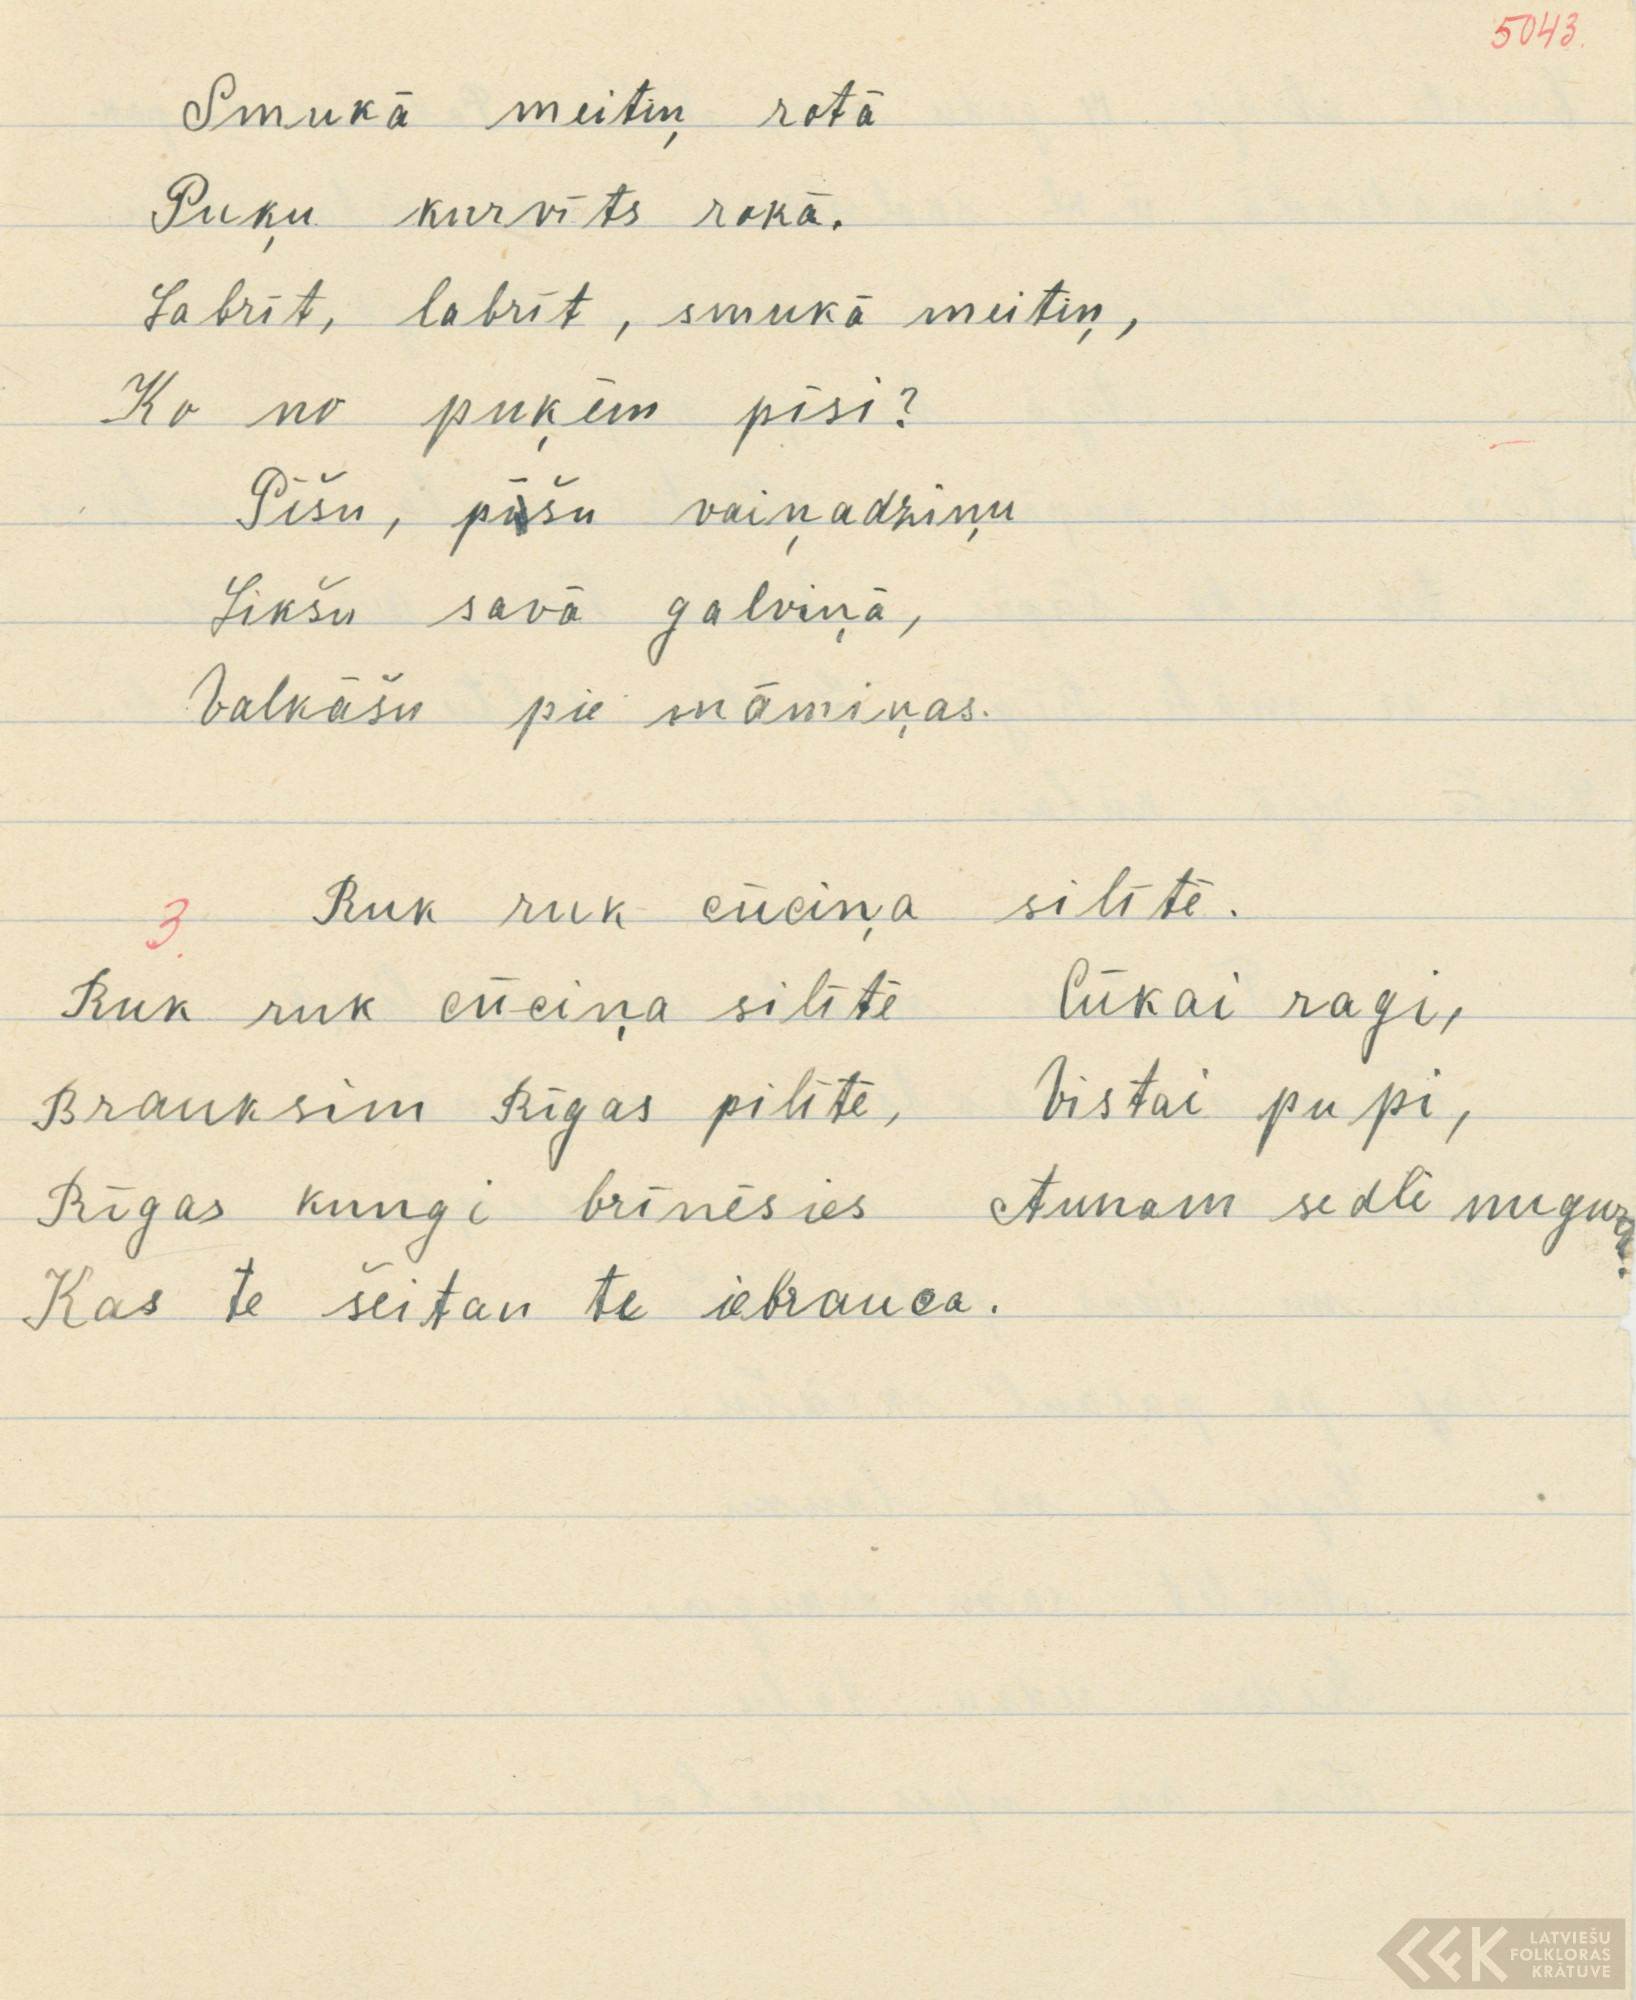 5043.
Smukā meitiņ rotā
Puķu kurvīts rokā.
Labrīt, labrīt, smukā meitiņ,
Ko no puķēm pīsi?
Pīšu, pīšu vaiņadziņu
Likšu savā galviņā,
Valkāšu pie māmiņas.
3. Ruk ruk cūciņa silītē.
Ruk ruk cūciņa silītē
Brauksim Rīgas pilītē,
Rīgas kungi brīnēsies
Kas te šeitan te iebrauca.
Cūkai ragi,
Vistai pupi,
Aunam sedli mugurā.
LATVIEŠU
FOLKLORAS
KRĀTUVE